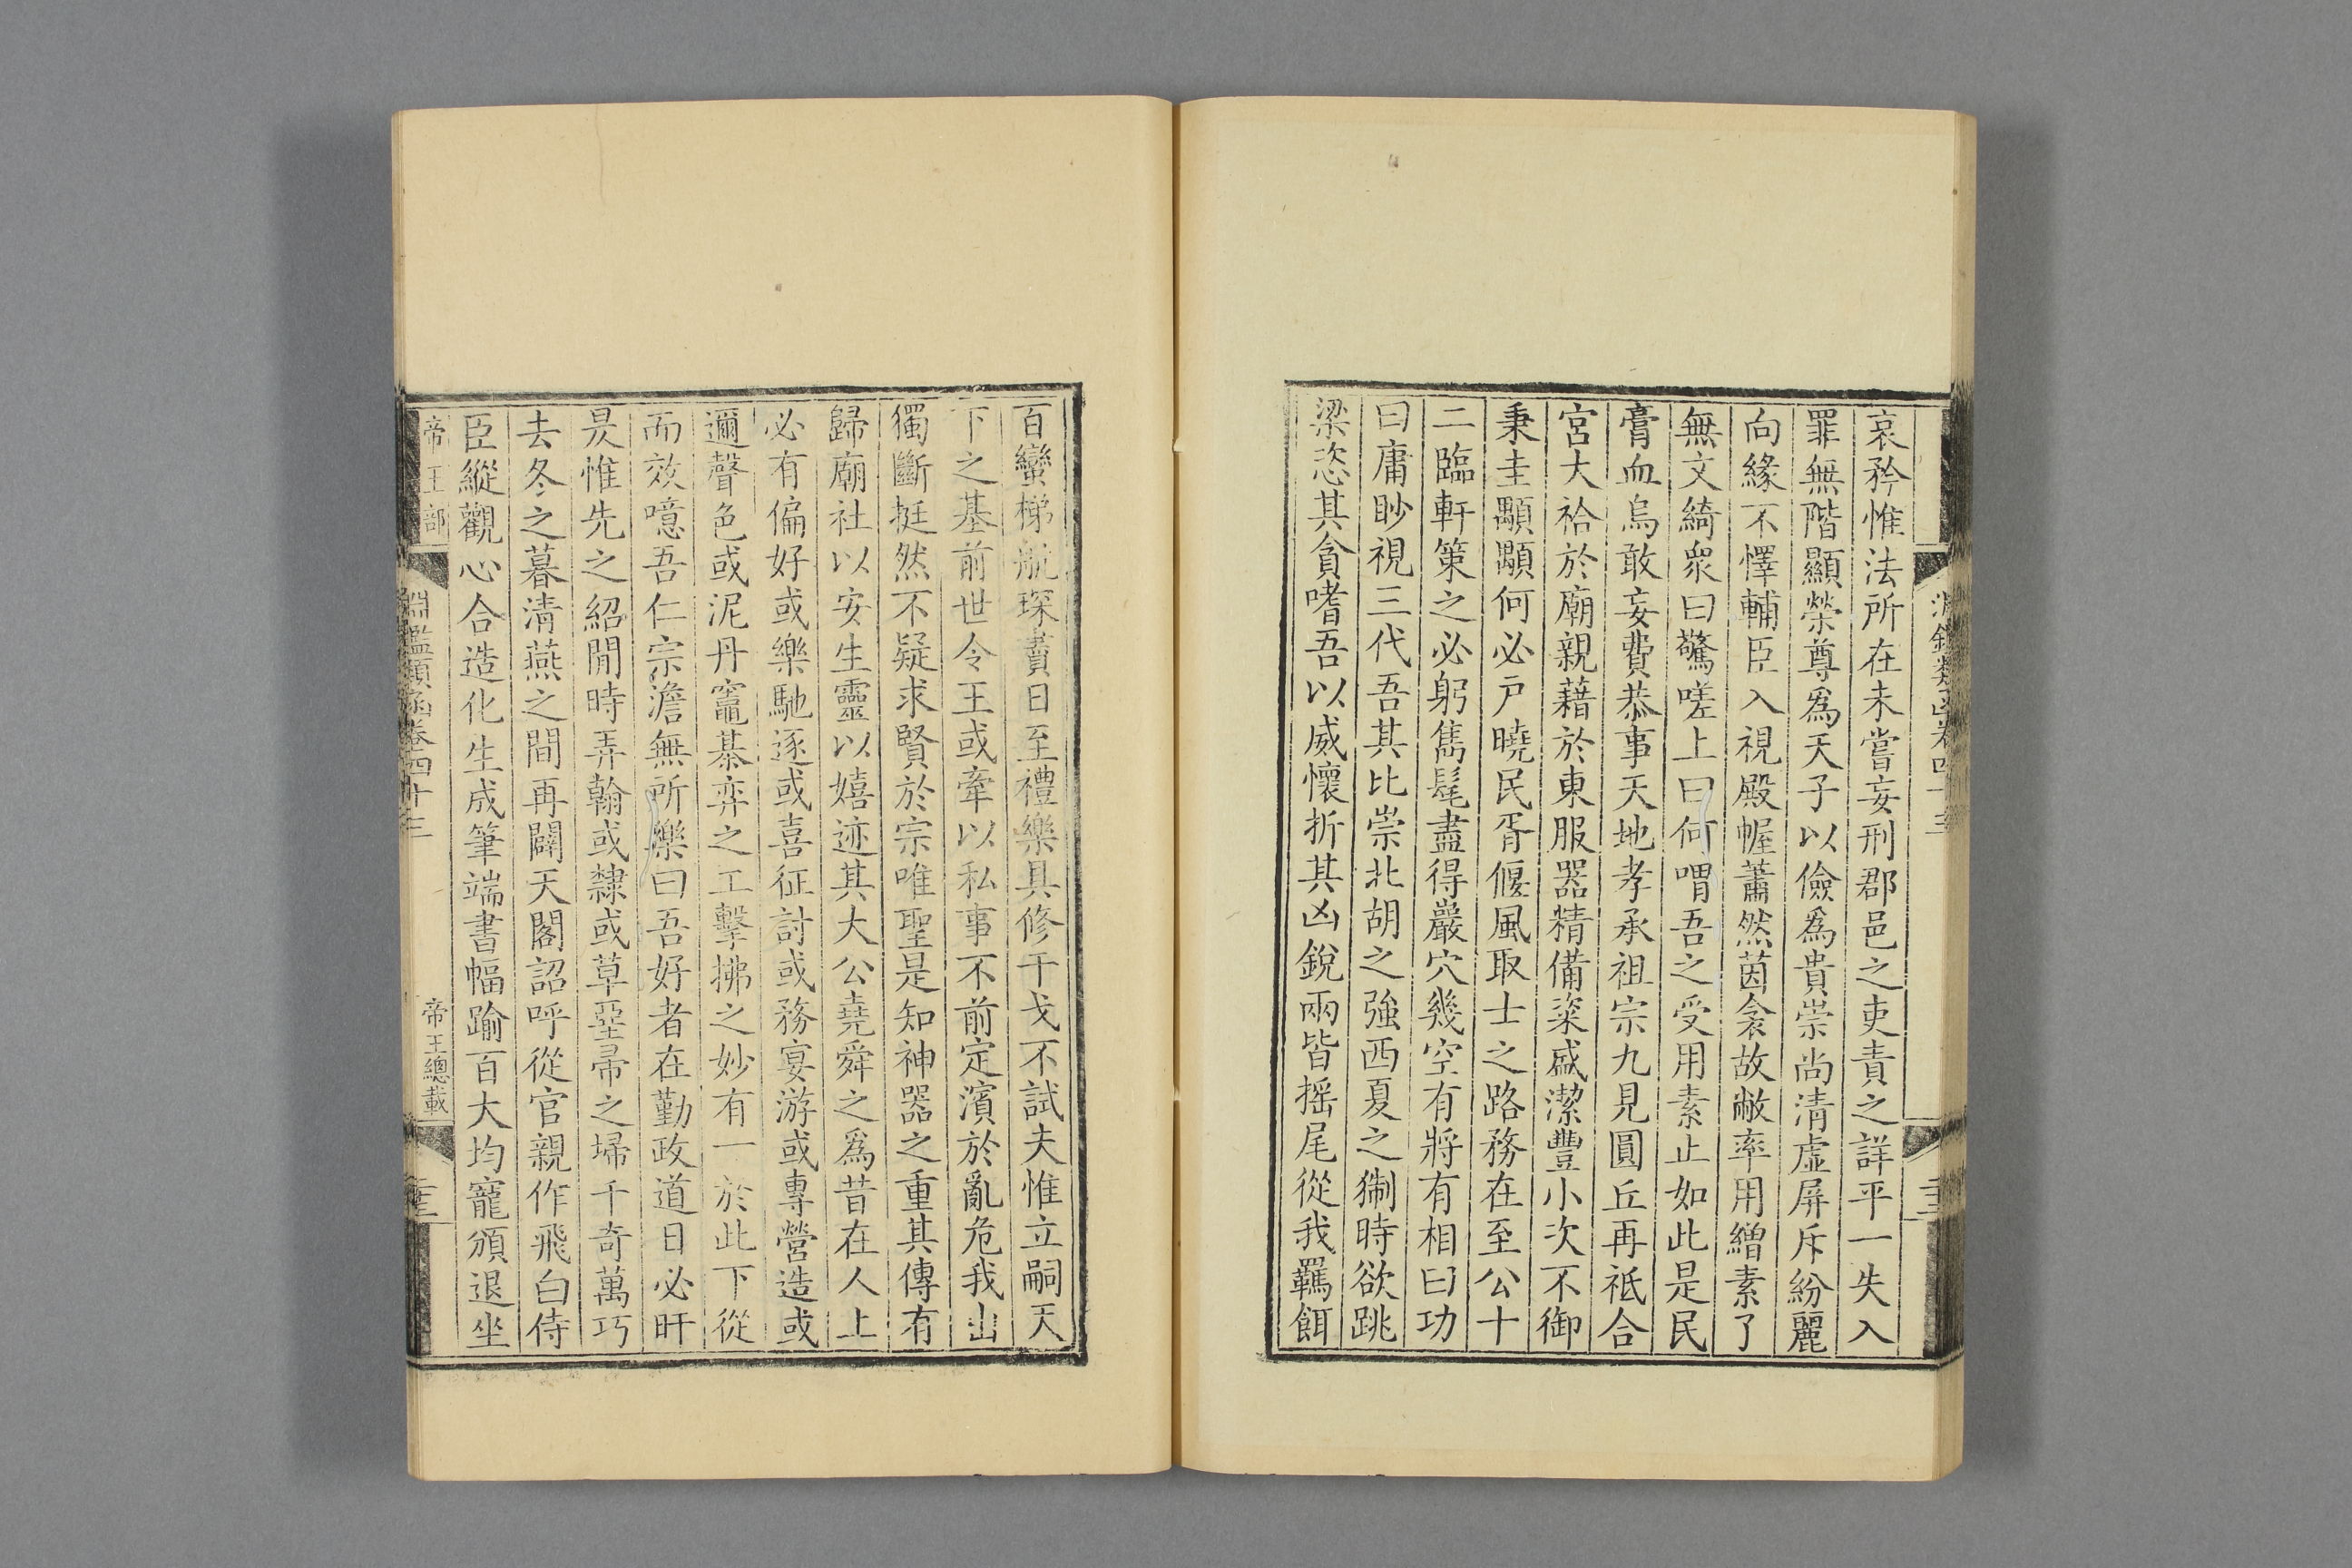 哀矜惟法所在未嘗妄刑郡邑之吏責之詳平一失入
罪無階顯榮尊爲天子以儉爲貴崇尚清虛屏斥紛麗
向緣不懌輔臣入視殿幄蕭然茵衾故敝率用繒素了
無文綺衆曰驚嗟上曰何喟吾之受用素止如此是民
膏血烏敢妄費恭事天地孝承祖宗九見圓丘再祗合
宮大祫於廟親藉於東服器精備粢盛潔豐小次不御
秉圭顒顒何必戶曉民胥偃風取士之路務在至公十
二臨軒策之必躬雋髦盡得巖穴幾空有將有相曰功
曰庸眇視三代吾其比崇北胡之強西夏之猘時欲跳
梁恣其貪嗜吾以威懷折其凶銳兩皆搖尾從我羈餌
百蠻梯航琛賮日至禮樂具修干戈不試夫惟立嗣天
下之基前世令王或牽以私事不前定濱於亂危我出
獨斷挺然不疑求賢於宗唯聖是知神器之重其傳有
歸廟社以安生靈以嬉迹其大公堯舜之爲昔在人上
必有偏好或樂馳逐或喜征討或務宴游或專營造或
邇聲色或泥丹竈棊弈之工擊拂之妙有一於此下從
而效噫吾仁宗澹無所樂曰吾好者在勤政道日必旰
昃惟先之紹閒時弄翰或隸或草堊帚之埽千奇萬巧
去冬之暮清燕之間再闢天閣詔呼從官親作飛白侍
臣縱觀心合造化生成筆端書幅踰百大均寵頒退坐
帝王部
淵鑑類函卷四十三
帝王總載